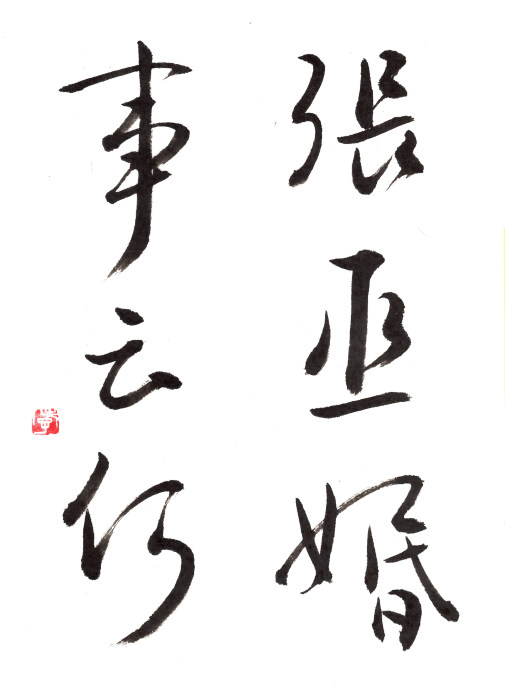 張巫婚
事云何